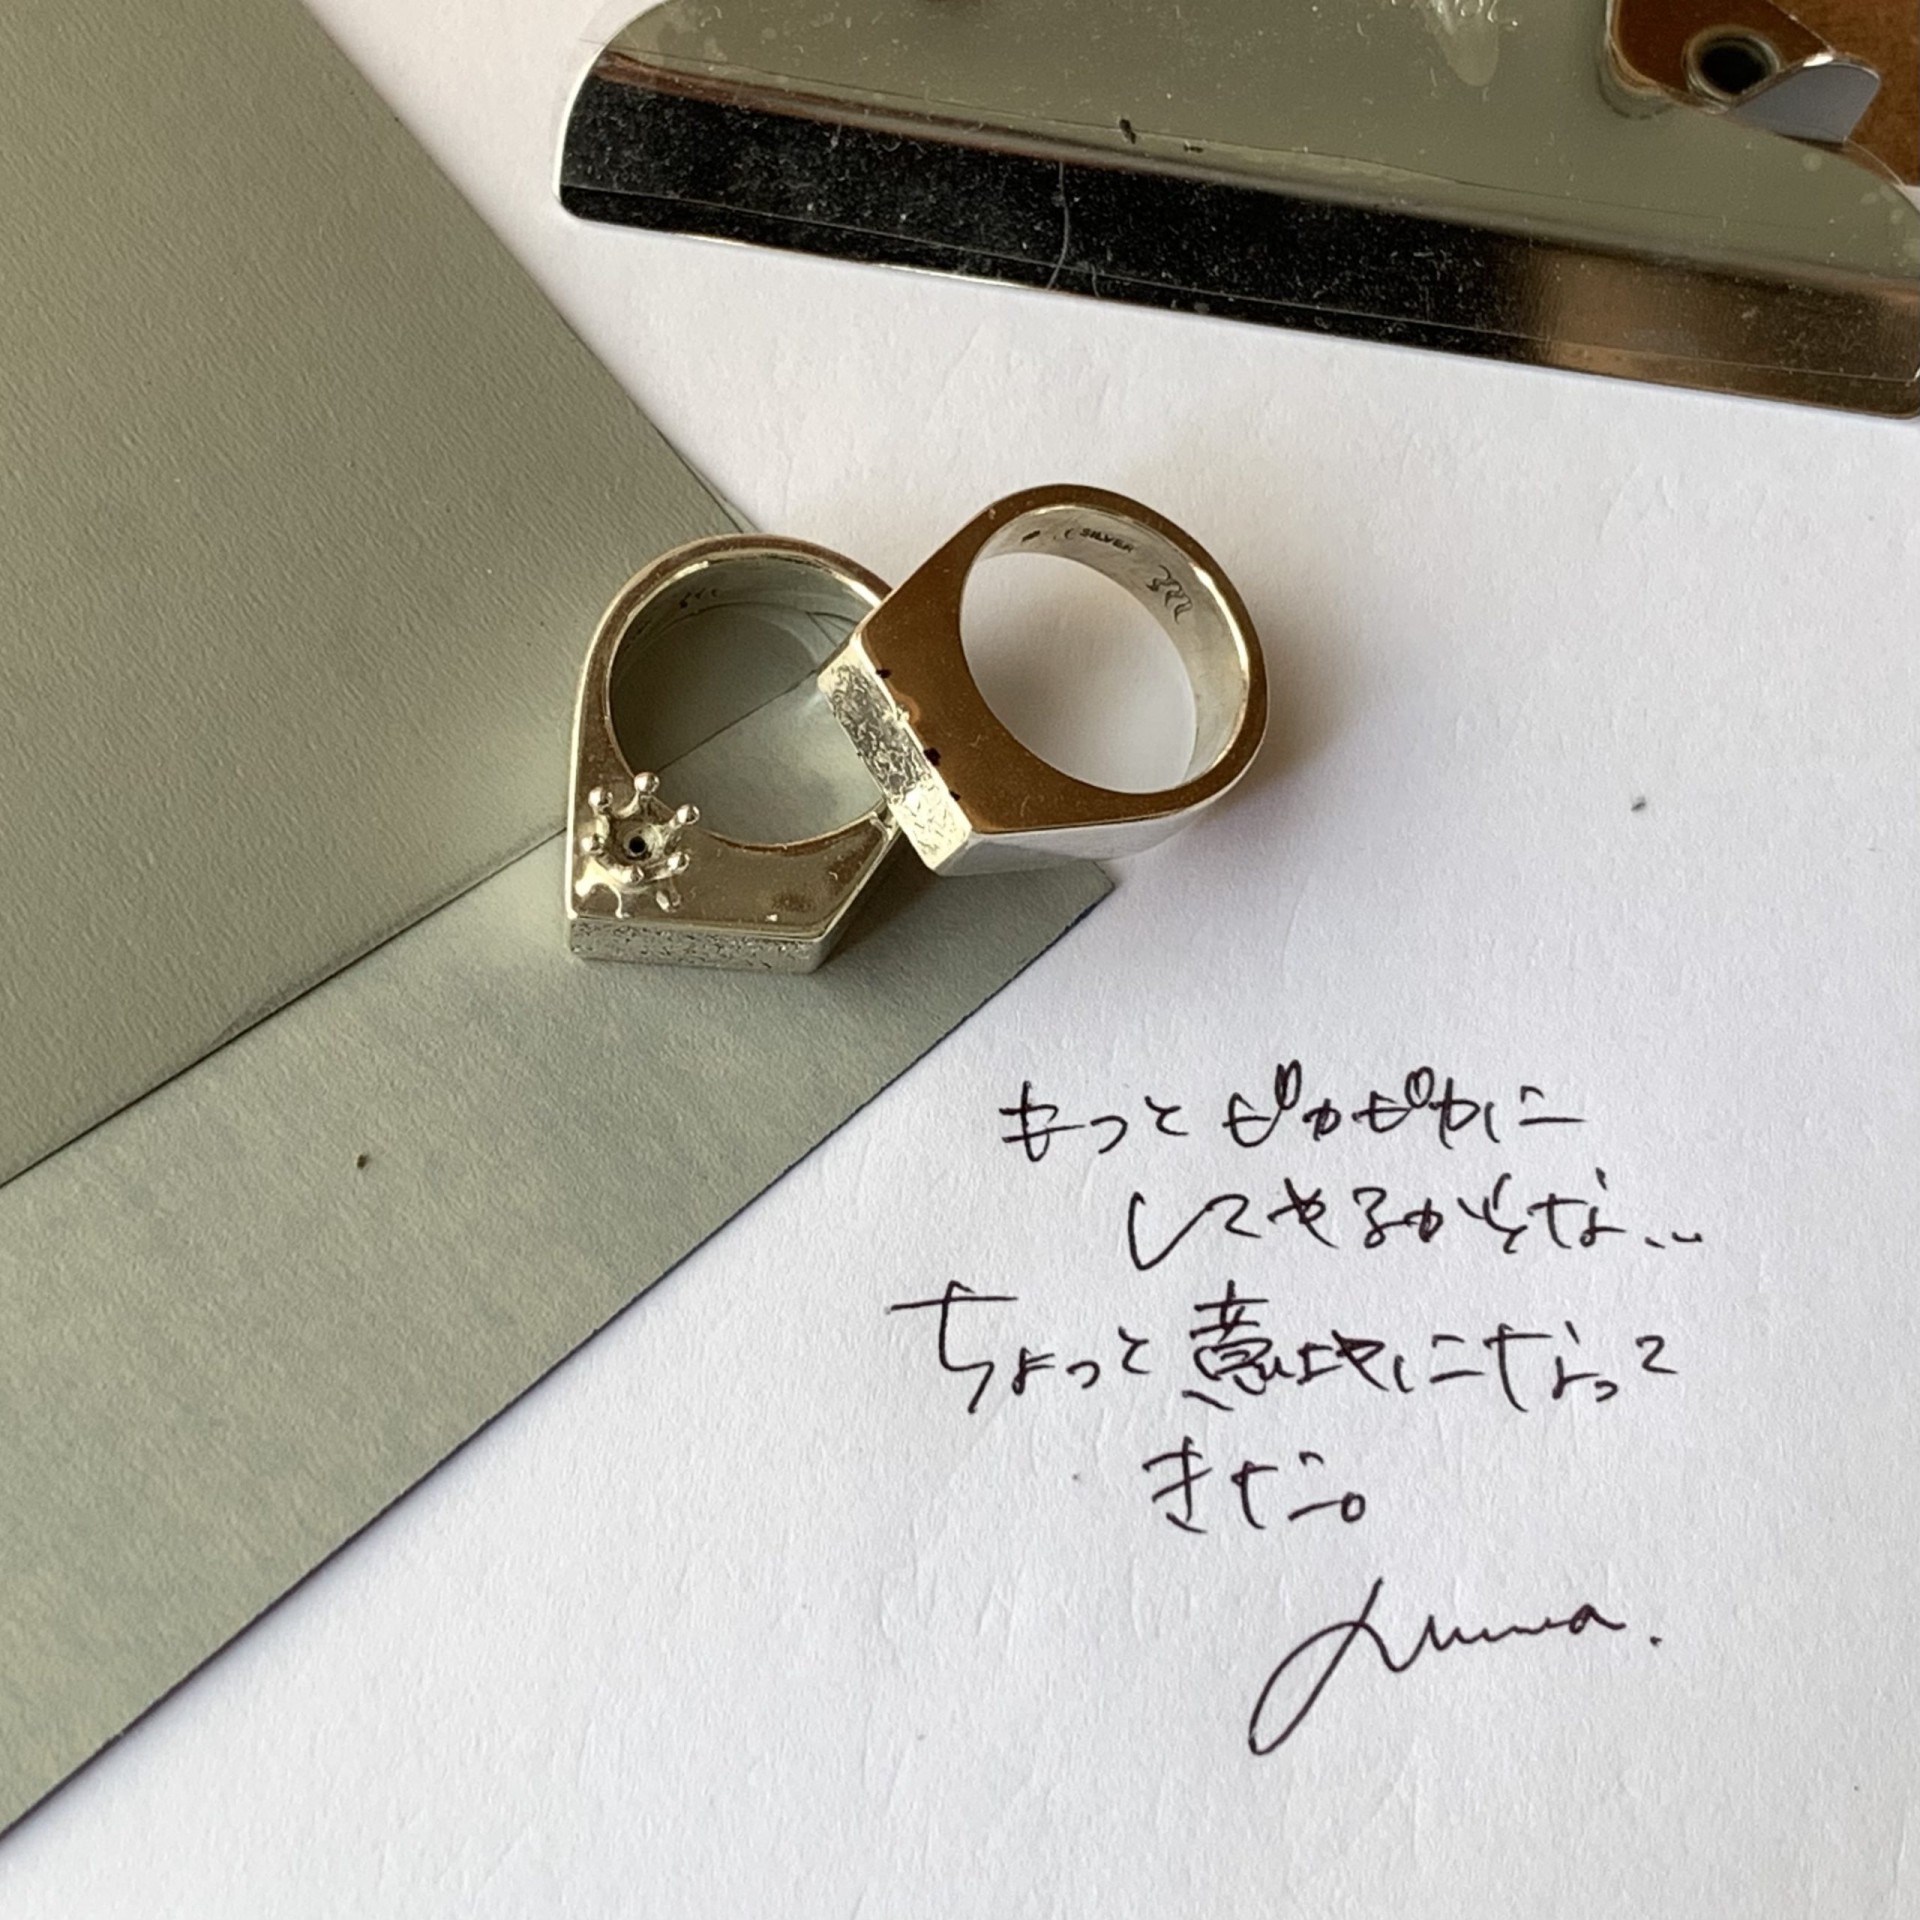 SILVER
もっとピカピカに
してやるがそな...
ちょっと意地になって
きた。